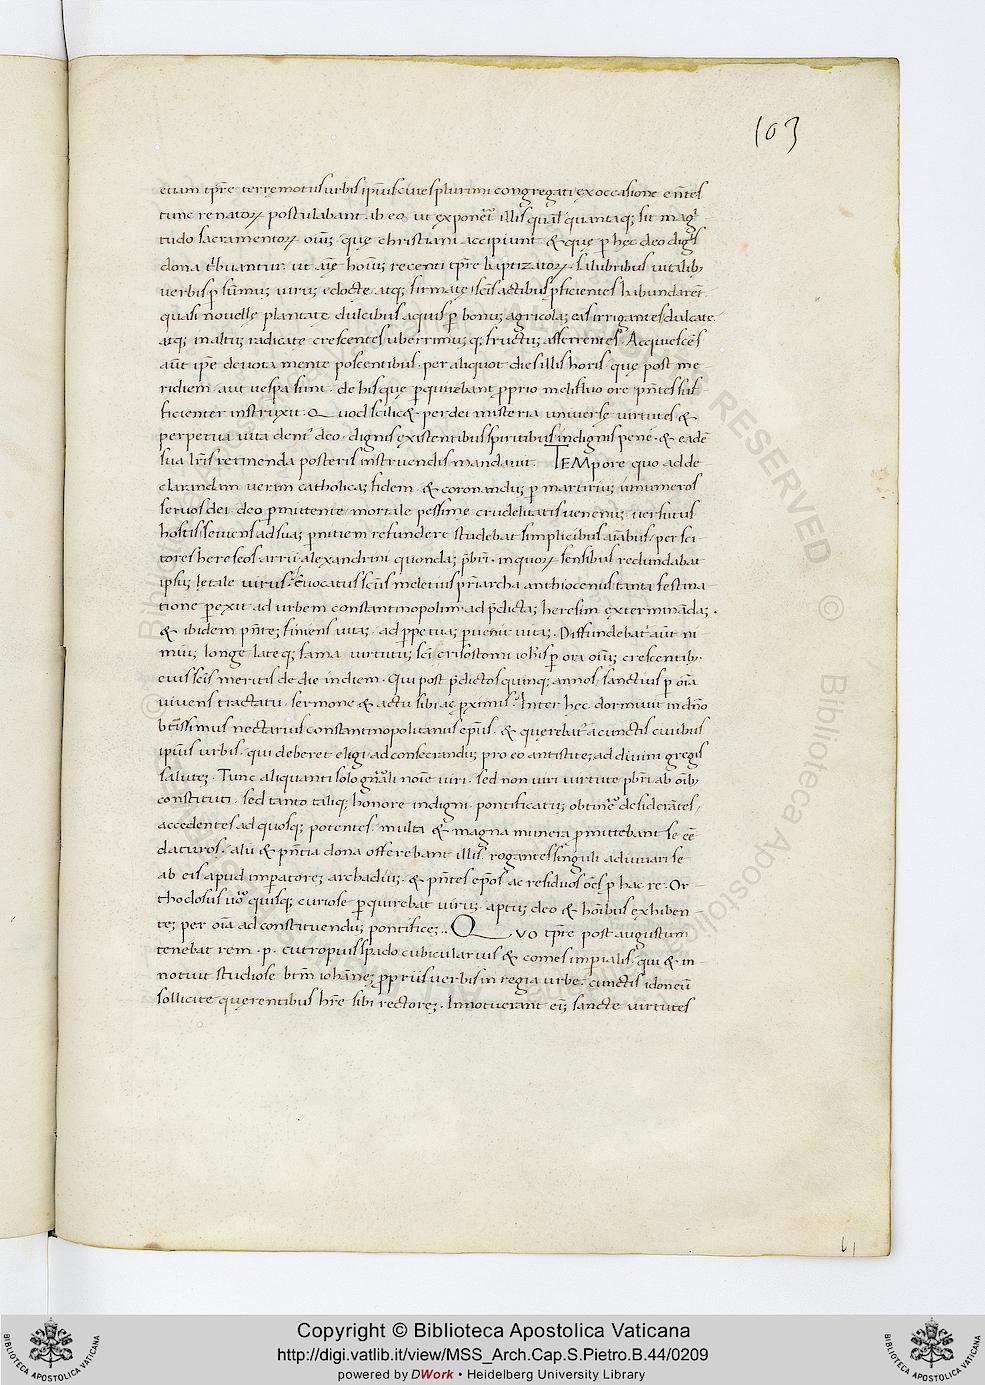 103
etiam tp̄re terremotus urbis ipsius cives plurimi congregati ex occasione eūtes
tunc renatoꝝ postulabant ab eo ut exponer& illis qual' quantaq; sit magi
tudo sacramentoꝝ que christiani accipiunt & que p hęc deo
dona ut recenti tp̄re baptizatoꝝ salubribus vitalib;
verbis atq; firmate scis actibus pficientes habundarent
quasi novelle plantate dulcibus aquis p bonū agricolā eas irrigantes dulcate
atq; in altū radicate crescentes uberrimūq; fructū afferentes. Acquiescens
aūt ipse devota mente poscentibus. per aliquot dies illis horis. quę post me
ridiem aut vespa sunt. de his quę pquirebant pprio melifluo ore
ficienter instruxit. Quod scilic& per dei misteria universe virtutes &
perpetua vita deo. dignis existentibus spiritibus indignis pene. & eadē
sua retinenda posteris instruendis mandavit. TEMpore quo ad de
clarandam veram catholicā fidem & coronandū p martiriū innumeros
servos dei. deo pmittente mortale pessime crudelitatis venenū versutus
hostis seviens ad suā pnitiem refundere studebat simplicibus aīabus. per sci
tores hereseos arrii alexandrini quondā pbri. in quoꝝ sensibus redundabat
ipsū letale virus. Evocatus scūs meletius priarcha anthiocenus tanta festina
tione pexit ad urbem constantinopolim. ad pdictā heresim exterminādā.
& ibidem finiens vitā. ad ppetuā pvenit vitā. Diffundebat' aūt ni
miū longe lateq; fama virtutū sci crisostomi ioh̄is p ora oīum crescentib;
eius scīs meritis de die in diem. Qui post pdictos quinq; annos sanctius p oīa
vivens tractatu sermone & actu sibi ac pximis. Inter hęc dormivit in dn̄o
btīssimus nectarius constantinopolitanus ep̄us. & querebat' a cunctis civibus
ipsius urbis. qui deber& eligi ad consecrandū pro eo antistitē ad divini gregis
salutē. Tunc aliquanti solo noīe viri. sed non viri virtute pbri ab oīb;
constituti. sed tanto taliq; honore indigni pontificatū obtinere desiderātes.
accedentes ad quosq; potentes. multa & magna munera pmittebant se eē
daturos. alii & dona offerebant illis. rogantes singuli adiuvari se
ab eis apud imperatorē archadiū. & ep̄os ac residuos oēs p hac re. Or
thodosus v° quisq; curiose pquirebat virū aptū deo & hoībus exhiben
tē per oīa ad constituendū pontificē.. QUO tp̄re post augustum
tenebat rem .p. eutropius spado cubicularius & comes imperialis. qui & in
notuit studiose btm iohannē ppriis verbis in regia urbe. cunctis idoneū
sollicite querentibus hr̄e sibi rectorē. Innotuerant ei sancte virtutes
Copyright © Biblioteca Apostolica Vaticana
http://digi.vatlib.it/view/MSS_Arch.Cap.S.Pietro.B.44/0209
powered by DWork • Heidelberg University Library